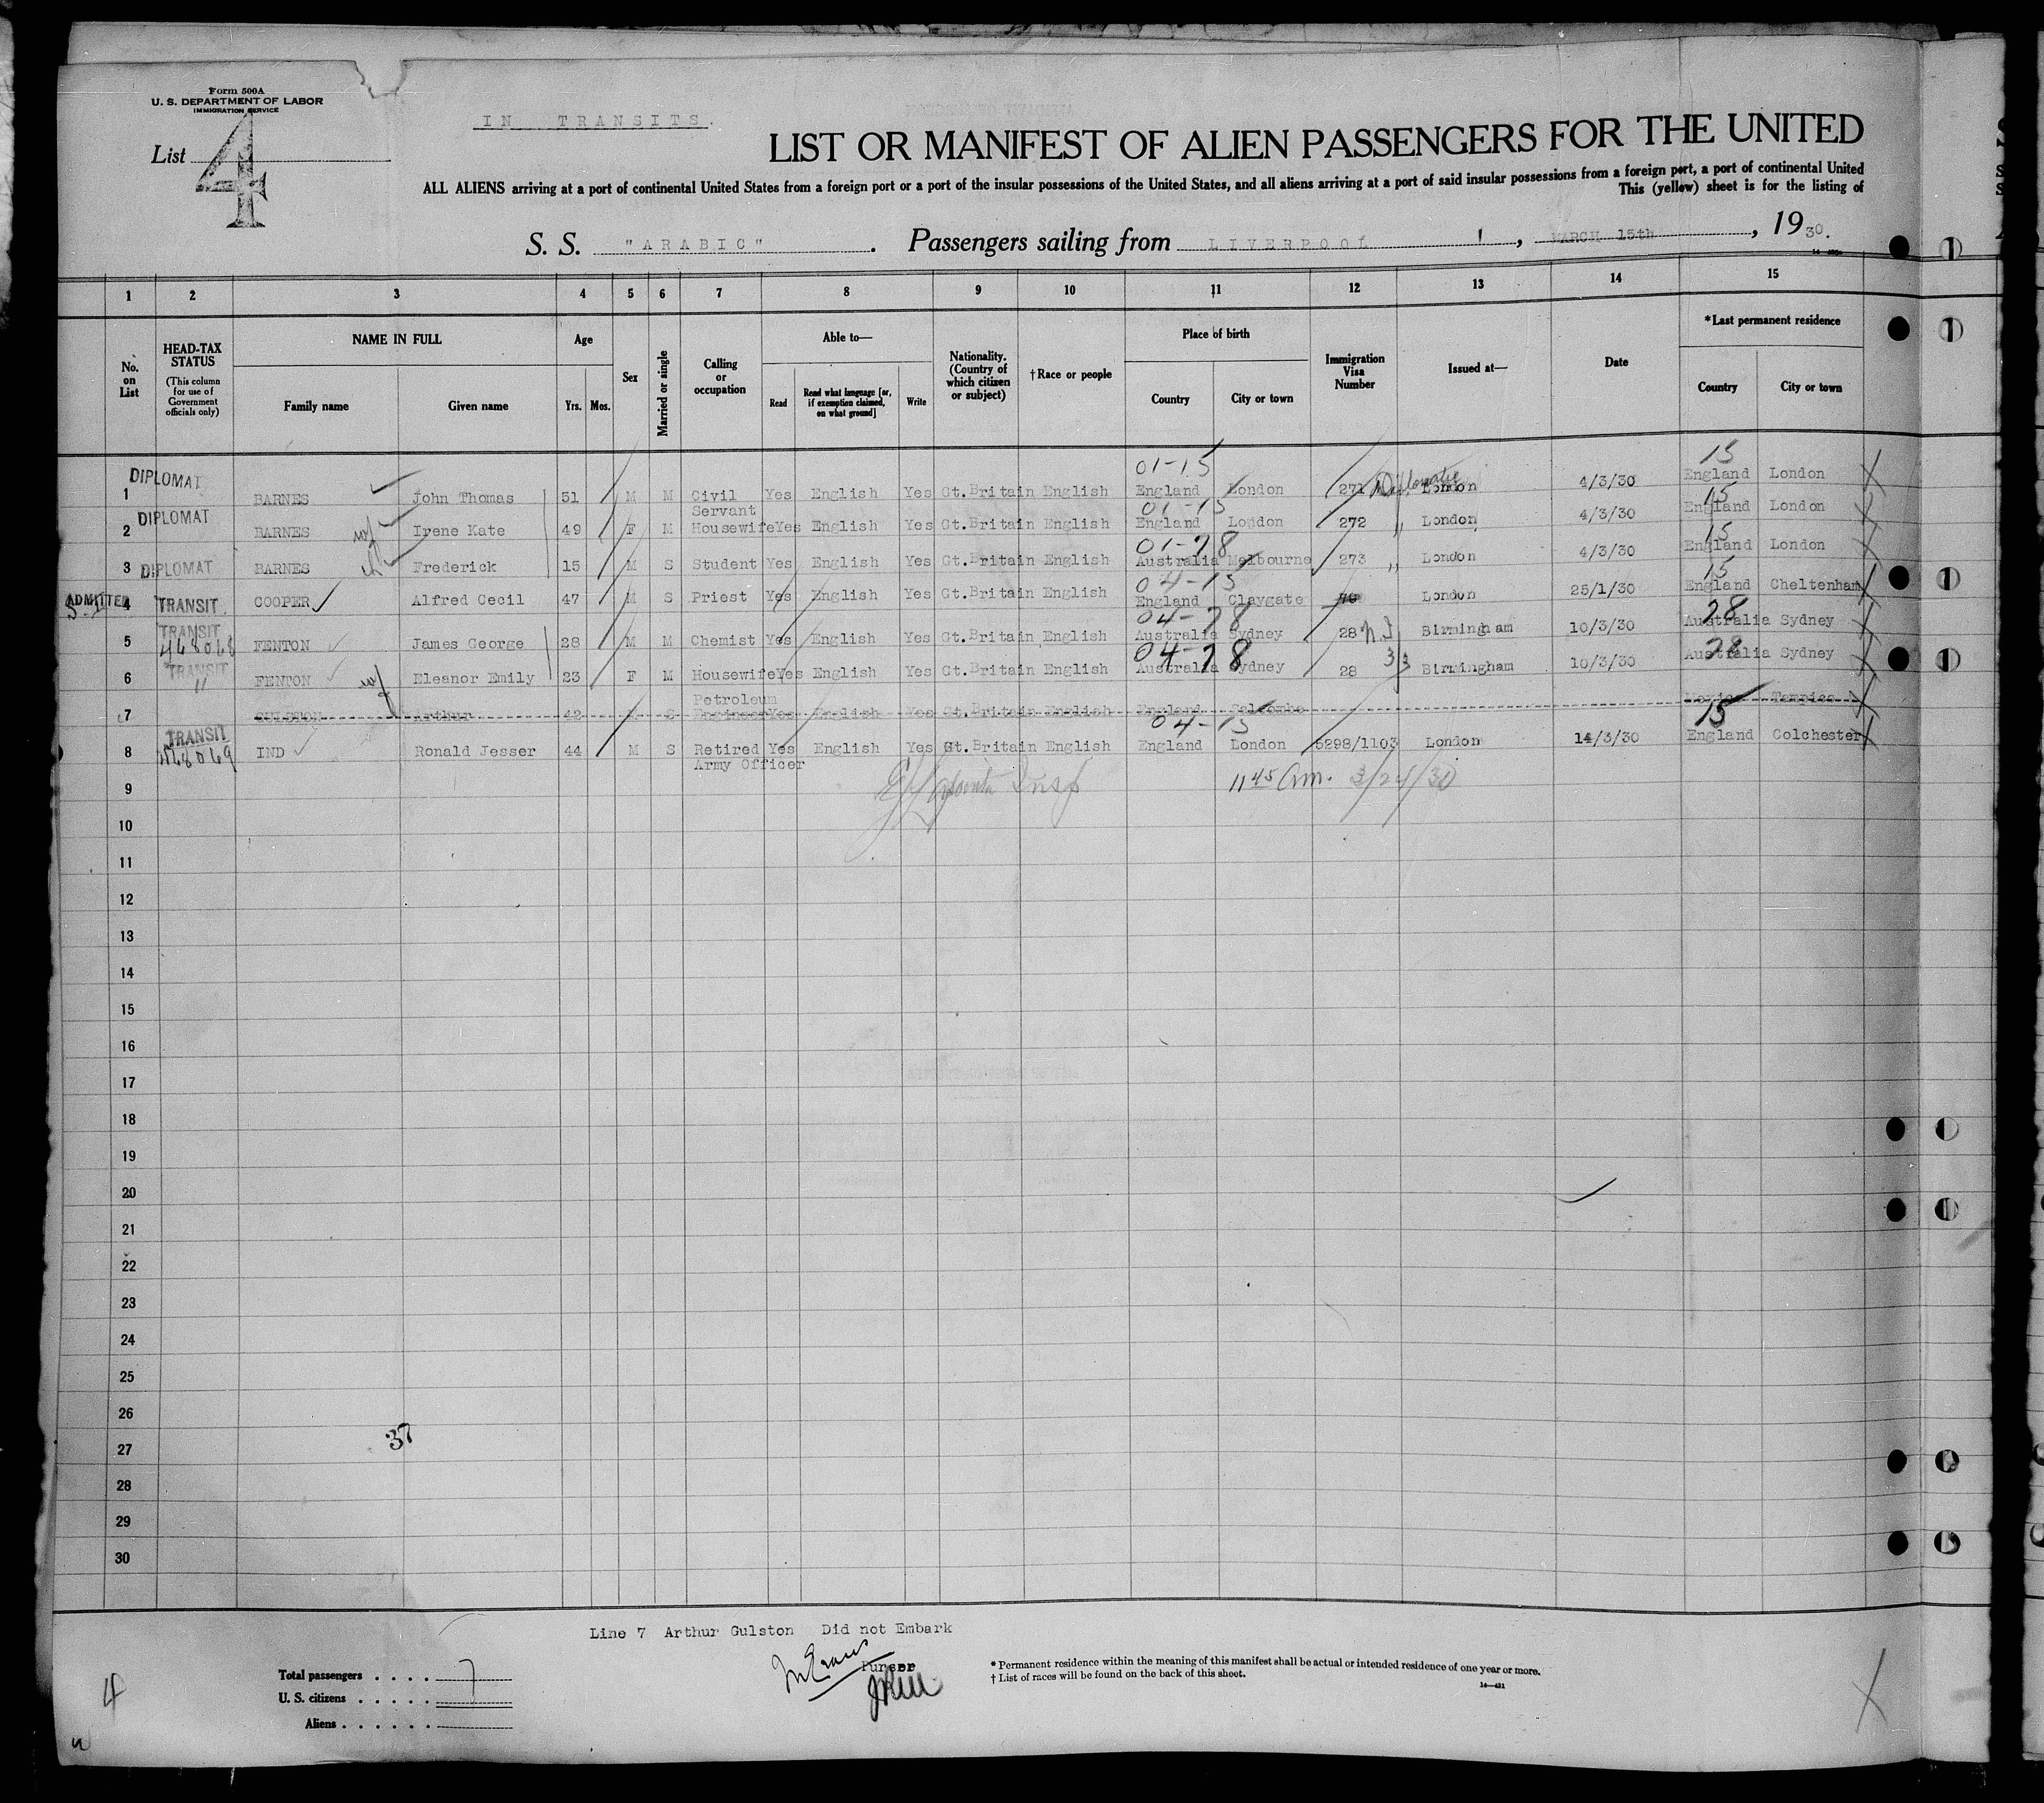 Form 500A
U. S. DEPARTMENT OF LABOR
IMMIGRATION SERVICE
List 4
IN TRANSITS.
LIST OR MANIFEST OF ALIEN PASSENGERS FOR THE UNITED
ALL ALIENS arriving at a port of continental United States from a foreign port or a port of the insular possessions of the United States, and all aliens arriving at a port of said insular possessions from a foreign port, a port of continental United
This (yellow) sheet is for the listing of
S. S. "ARABIC". Passengers sailing from LIVERPOOL, MARCH 15th, 1930.
1 2 3 4 5 6 7 8 9 10 11 12 13 14 15
No. on List
HEAD-TAX STATUS
(This column for use of Government officials only)
NAME IN FULL
Family name
Given name
Age
Yrs. Mos.
Sex
Married or single
Calling or occupation
Able to—
Read
Read what language [or, if exemption claimed, on what ground]
Write
Nationality. (Country of which citizen or subject)
† Race or people
Place of birth
Country
City or town
Immigration Visa Number
Issued at—
Date
*Last permanent residence
Country
City or town
01-15 15
1 DIPLOMAT BARNES John Thomas 51 M M Civil Servant Yes English Yes Gt.Britain English England London 271 Diplomatic London 4/3/30 England London
01-15 15
2 DIPLOMAT BARNES wf Irene Kate 49 F M Housewife Yes English Yes Gt.Britain English England London 272 " London 4/3/30 England London
01-28 15
3 DIPLOMAT BARNES ch Frederick 15 M S Student Yes English Yes Gt.Britain English Australia Melbourne 273 " London 4/3/30 England London
04-15 15
ADMITTED 4 TRANSIT COOPER Alfred Cecil 47 M S Priest Yes English Yes Gt.Britain English England Claygate London 25/1/30 England Cheltenham
04-28 28
5 TRANSIT 468068 FENTON James George 28 M M Chemist Yes English Yes Gt.Britain English Australia Sydney 28 Birmingham 10/3/30 Australia Sydney
04-28 28
6 TRANSIT " FENTON wf Eleanor Emily 23 F M Housewife Yes English Yes Gt.Britain English Australia Sydney 28 Birmingham 10/3/30 Australia Sydney
7 GULSTON Arthur 42 M S Petroleum Engineer Yes English Yes Gt.Britain English England Salcombe Mexico Tampico
04-15 15
8 TRANSIT 468069 IND Ronald Jesser 44 M S Retired Army Officer Yes English Yes Gt.Britain English England London 5298/1103 London 14/3/30 England Colchester
9 Insp 11 45 Am. 3/24/30
10
11
12
13
14
15
16
17
18
19
20
21
22
23
24
25
26
27
37
28
29
30
Line 7 Arthur Gulston Did not Embark
Purser
Total passengers . . . . 7
U. S. citizens . . . . .
Aliens . . . . . .
* Permanent residence within the meaning of this manifest shall be actual or intended residence of one year or more.
† List of races will be found on the back of this sheet.
14—431
4